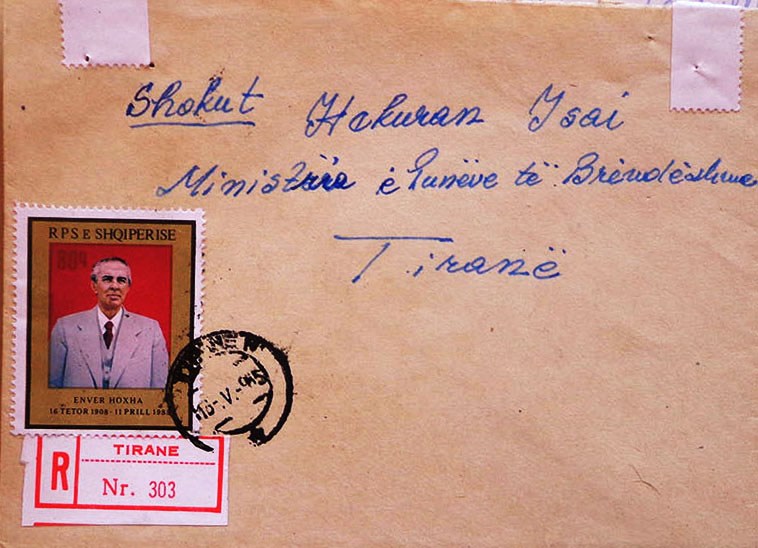 Shokut Hekuran Isai
Ministria ë Punëve të Brëndëshme
Tiranë
R P S E SHQIPERISE
ENVER HOXHA
16 TETOR 1908 - 11 PRILL 1985
R
TIRANE
Nr. 303